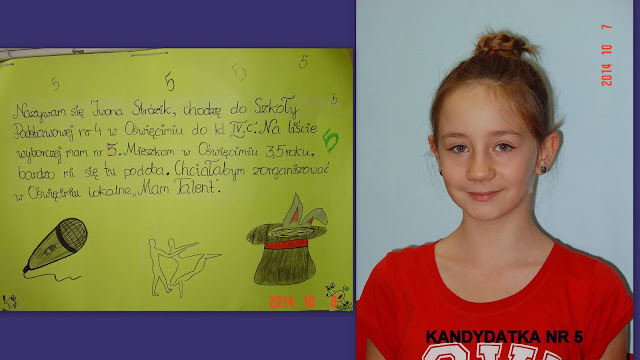 5 5 5 5
Nazywam się Iwona Stróżik, chodzę do Szkoły
Podstawowej nr 4 w Oświęcimiu do kl IV,,c". Na liście
wyborczej mam nr 5. Mieszkam w Oświęcimiu 3,5 roku,
bardzo mi się tu podoba. Chciałabym zorganizować
w Oświęcimiu lokalne ,,Mam Talent".
5
5
2014 10
2014 10 7
KANDYDATKA NR 5